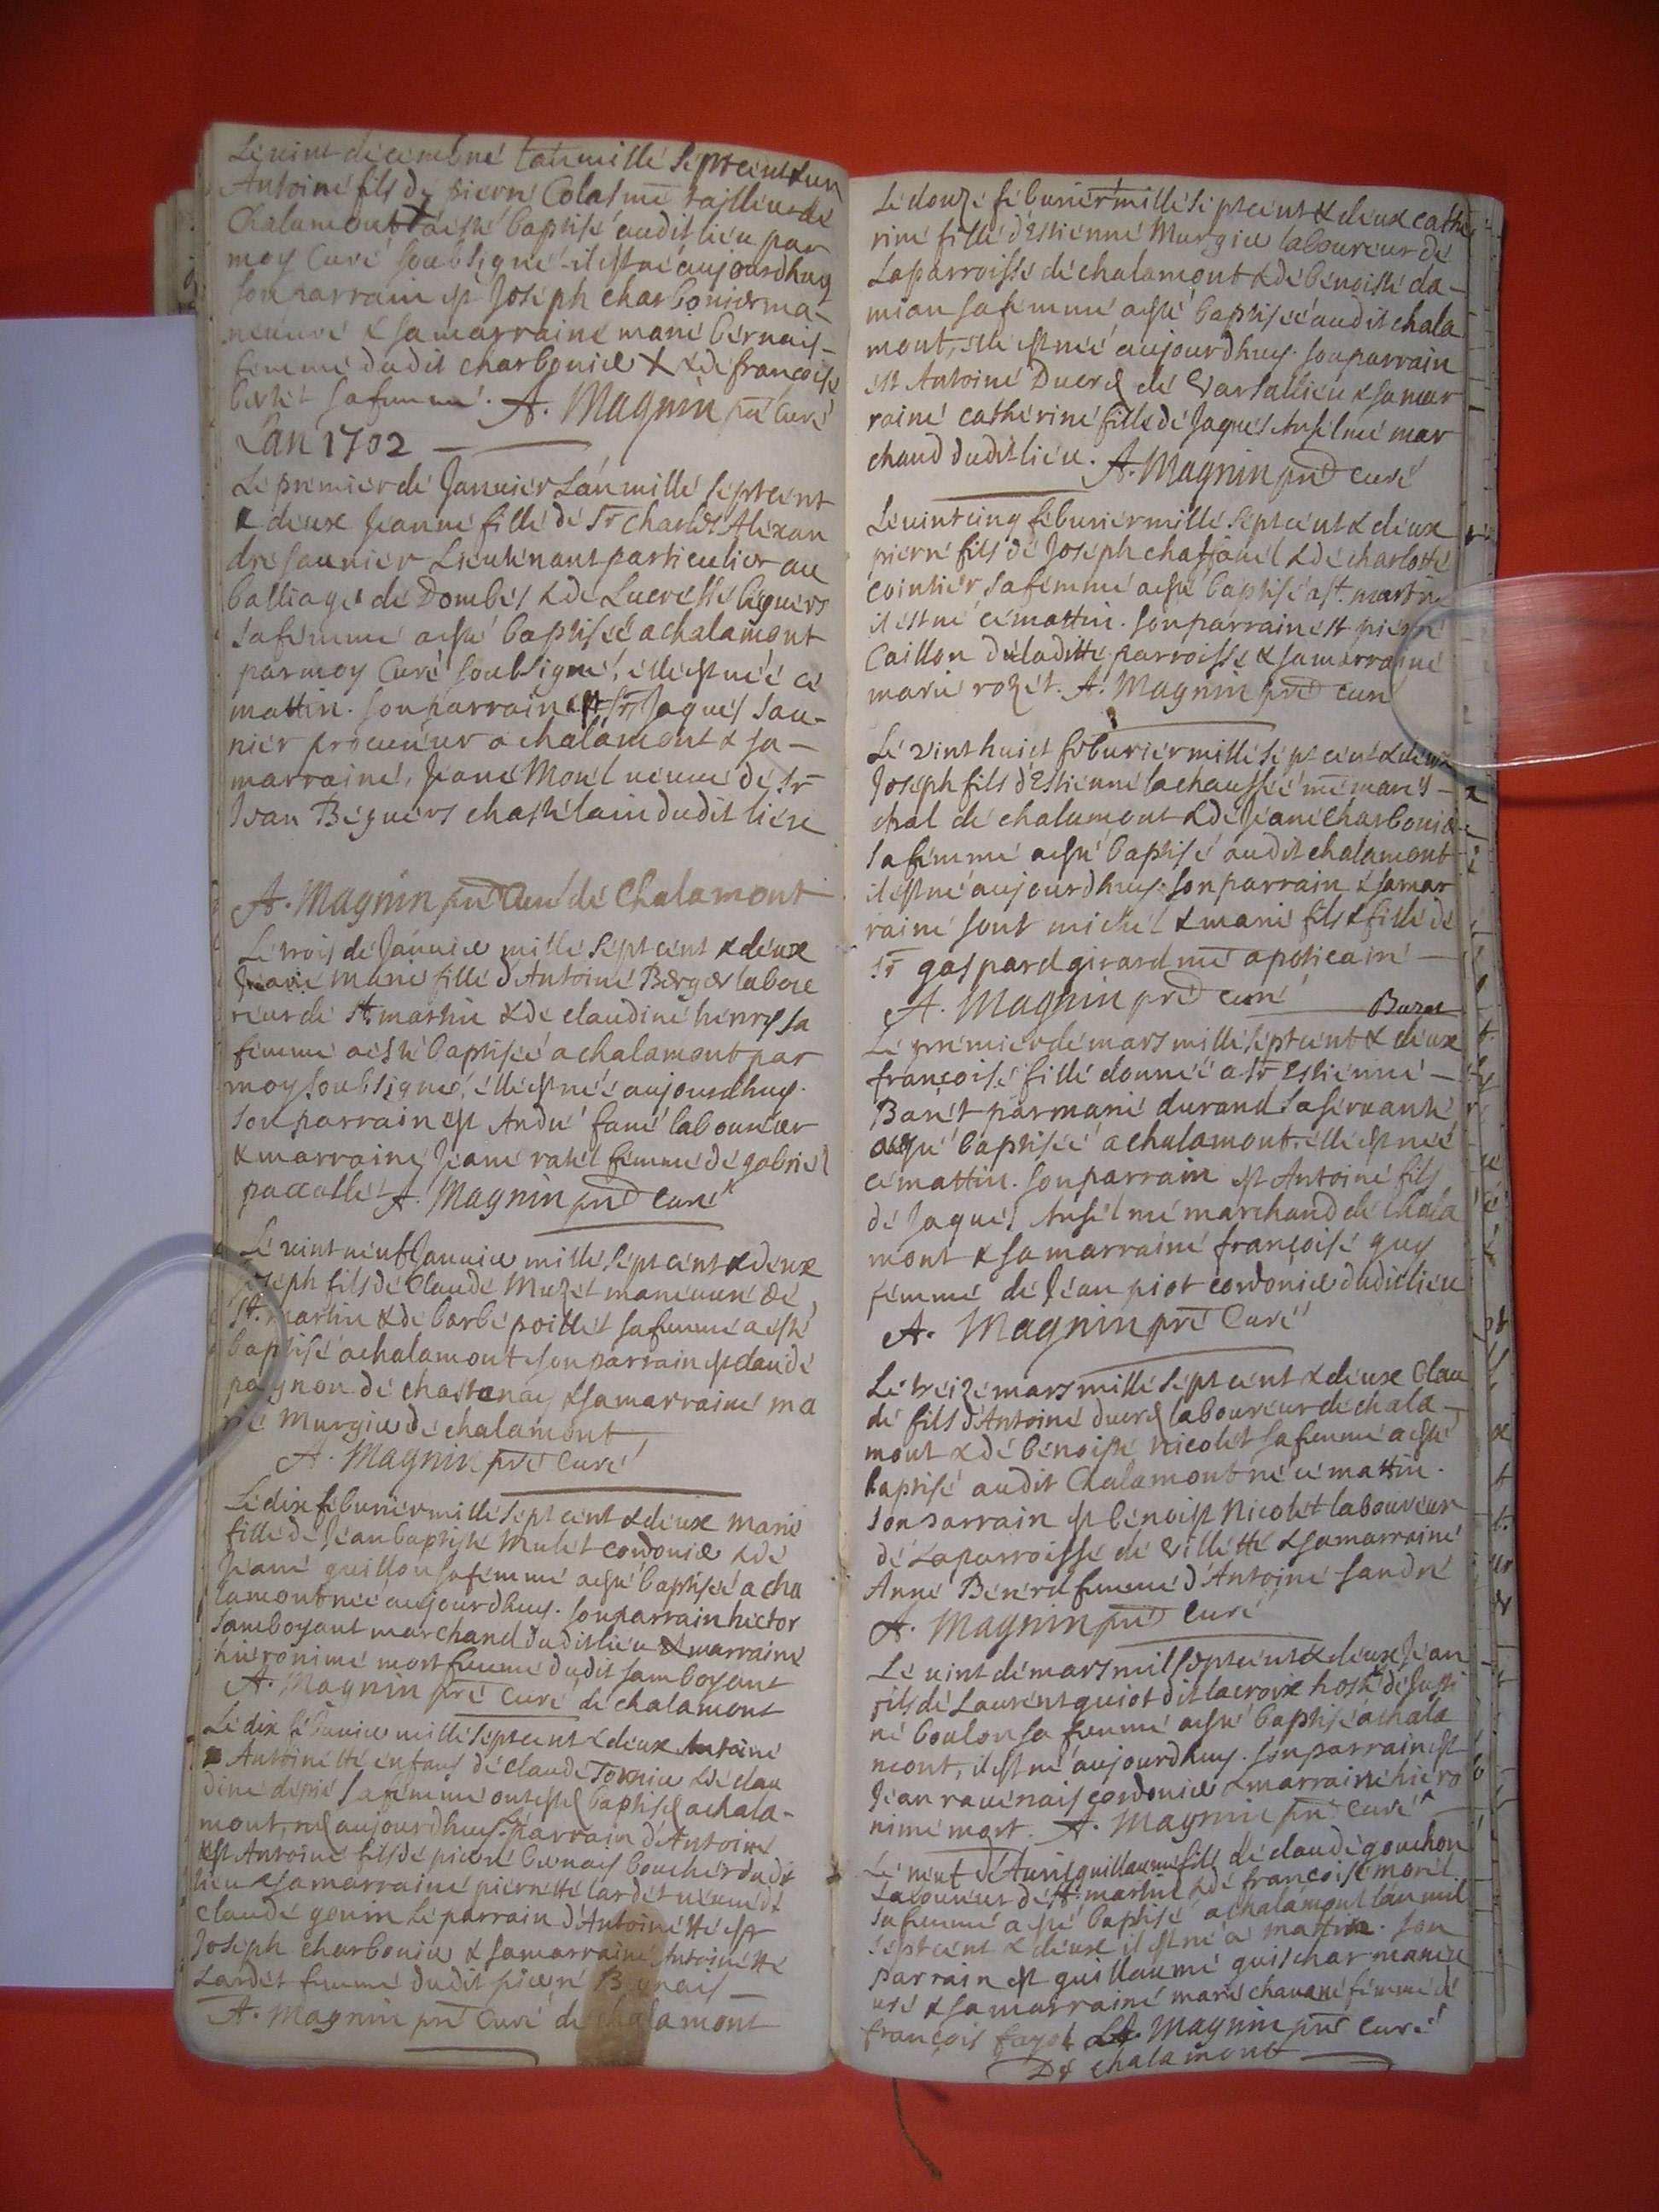 Le vint decembre l'an mille sept cent & un
Antoine fils de pierre Colas me tailleur de
Chalamont a esté baptisé audit lieu par
moy Curé soubsigné il est né aujourdhuy
son parrain est Joseph charbonier ma-
neuvre & sa marraine marie bernais-
femme dudit charbonier X & de françoise
sa femme. A. Magnin pre Curé
Lan 1702
Le premier de Janvier L'an mille sept cent
& deux Jeanne fille de Sr Charles Alexan
dre saunier Lieutenant particulier au
balliage de Dombes & de Lucresse beguers
sa femme a esté baptisée a chalamont
par moy Curé soubsigné, elle est née ce
mattin. son parrain est Sr Jaques sau-
nier procureur a chalamont & sa-
marraine, Jeane Monel veuve de Sr
Jean Beguers chastelain dudit lieu
A. Magnin pre Curé de Chalamont
Le trois de Janvier mille sept cent & deux
marie fille d'Antoine Berger labou
reur de St. martin & de claudine henry sa
femme a esté baptisée a chalamont par
moy soubsigné, elle est née aujourdhuy.
son parrain est André favre laboureur
& marraine Jeane ratel femme de gabriel
paccallet A. Magnin pre Curé
Le vint neuf Janvier mille sept cent & deux
Joseph fils de Claude Muzet maneuvre de
St. martin & de barbe poillet sa femme a esté
baptisé a chalamont son parrain est claude
pagnon de chastenay & sa marraine ma
rie Murgier de chalamont
A. Magnin pre Curé
Le dix feburier mille sept cent & deux marie
fille de Jean baptiste Mulet cordonier & de
Jeane guillon sa femme a esté baptisée a cha
lamont née aujourdhuy. son parrain hector
samboyant marchand dudit lieu & marraine
hieronime mort femme dudit samboyant
A. Magnin pre Curé de chalamont
Le dix feburier mille sept cent & deux Antoine
& Antoinette enfans de claude Tornier & de clau
dine depré sa femme ont estés baptisés a chala-
mont, nés aujourdhuy. Le parrain d'Antoine
est Antoine fils de pierre bernais boucher dudit
lieu & sa marraine pierrette lardet veuve de
claude genin Le parrain d'Antoinette est
Joseph charbonier & sa marraine Antoinette
Lardet femme dudit pierre Bernais
A. Magnin pre Curé de chalamont
Le douze feburier mille sept cent & deux cathe
rine fille d'Estienne Murgier laboureur de
La parroisse de chalamont & de benoiste da-
mian sa femme a esté baptisée audit chala
mont, elle est née aujourdhuy. son parrain
est Antoine Ducret de Versallieu & sa mar
raine catherine fille de Jaques Anselme mar
chand dudit lieu. A. Magnin pre curé
Le vint cinq feburier mille sept cent & deux
pierre fils de Joseph chassanel & de charlotte
cointier sa femme a esté baptisé a St. martin
il est né ce mattin. son parrain est pierre
Caillon de laditte parroisse & sa marraine
marie rozet. A. Magnin pre curé
Le vint huict feburier mille sept cent & deux
Joseph fils d'Estienne lachaussée me mares-
chal de chalamont & de Jeane charbonier
sa femme a esté baptisé audit chalamont
il est né aujourdhuy. son parrain & sa mar
raine sont michel & marie fils & fille de
Sr gaspard girard me apoticaire
A. Magnin pre curé
Le premier de mars mille sept cent & deux
françoise fille donnée a Sr Estienne
Baret par marie durand sa servante
a esté baptisée a chalamont. elle est née
ce mattin. son parrain est Antoine fils
de Jaques Anselme marchand de Chala
mont & sa marraine françoise guy
femme de Jean piot cordonier dudit lieu
A. Magnin pre Curé
Le treize mars mille sept cent & deux Clau
de fils d'Antoine ducret laboureur de chala-
mont & de benoiste nicolet sa femme a esté
baptisé audit Chalamont né ce mattin.
son parrain est benoist Nicolet laboureur
de La parroisse de villette & sa marraine
Anne Benerd femme d'Antoine sandre
A. Magnin pre Curé
Le vint de mars mil sept cent & deux Jean
fils de Laurent guiot dit lacroix hoste & de Justi
ne boulon sa femme a esté baptisé a chala
mont, il est né aujourdhuy. son parrain est
Jean ravenais cordonier & marraine hiero
nime mort. A. Magnin pre Curé
Le neuf d'Avril guillaume fils de claude gouchon
Laboureur de St. martin & de françoise morel
sa femme a esté baptisé a chalamont l'an mil
sept cent & deux il est né ce mattin. son
parrain est guillaume guischar maneu
vre & sa marraine marie chavane femme de
françois fayol A. Magnin pre curé
De chalamont